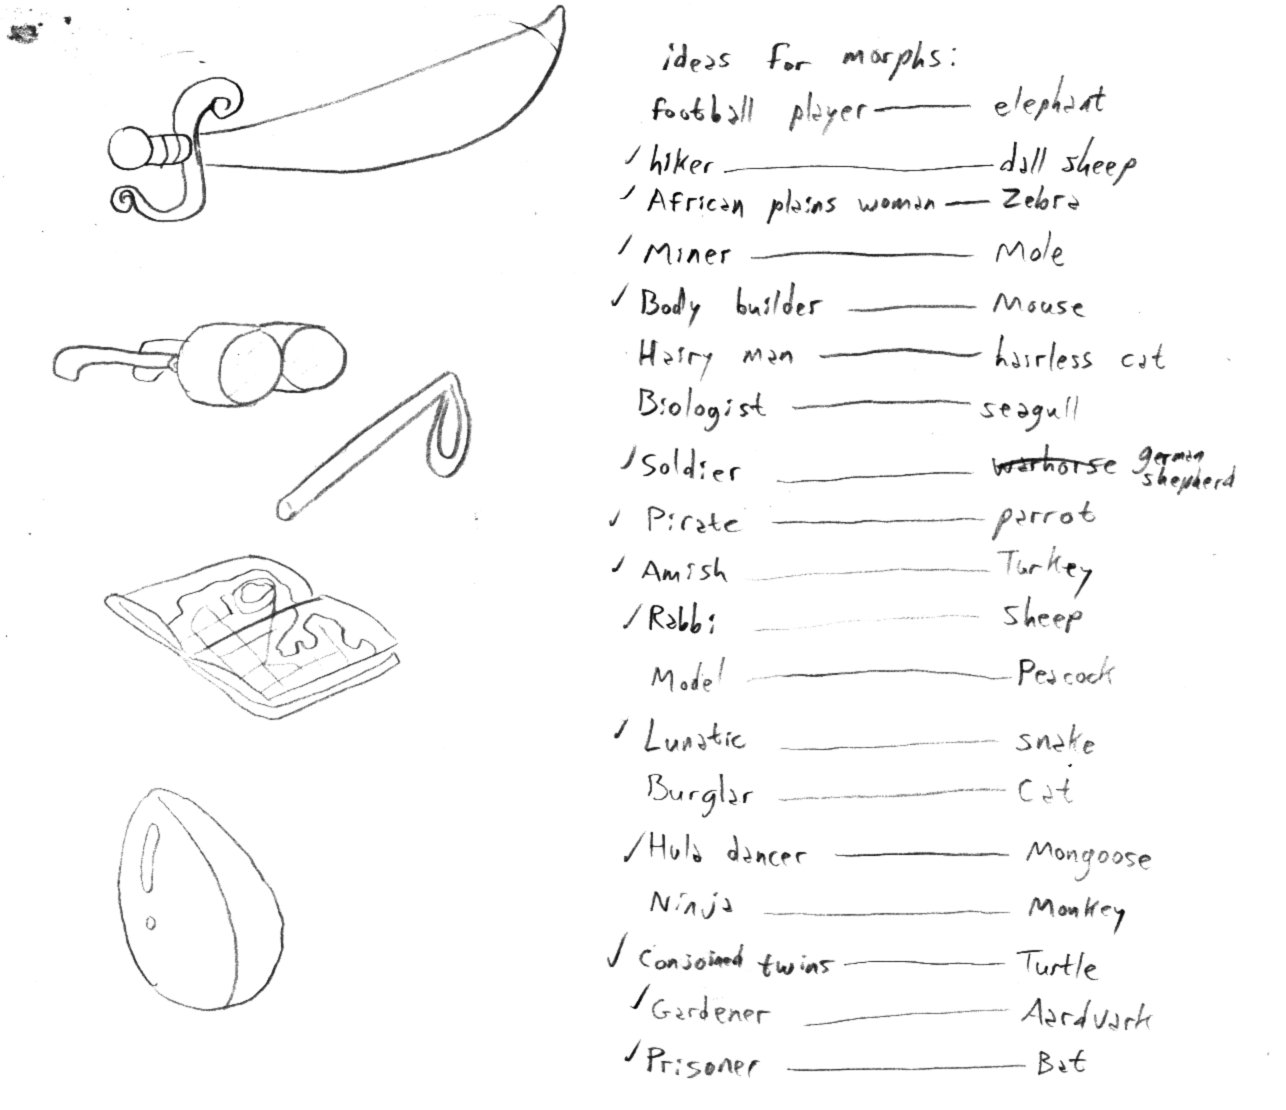 ideas for morphs:
football player — elephant
✓ hiker — dall sheep
✓ African plains woman — Zebra
✓ Miner — Mole
✓ Body builder — Mouse
Hairy man — hairless cat
Biologist — seagull
✓ Soldier — warhorse german shepherd
✓ Pirate — parrot
✓ Amish — Turkey
✓ Rabbi — Sheep
Model — Peacock
✓ Lunatic — snake
Burglar — Cat
✓ Hula dancer — Mongoose
Ninja — Monkey
✓ Conjoined twins — Turtle
✓ Gardener — Aardvark
✓ Prisoner — Bat